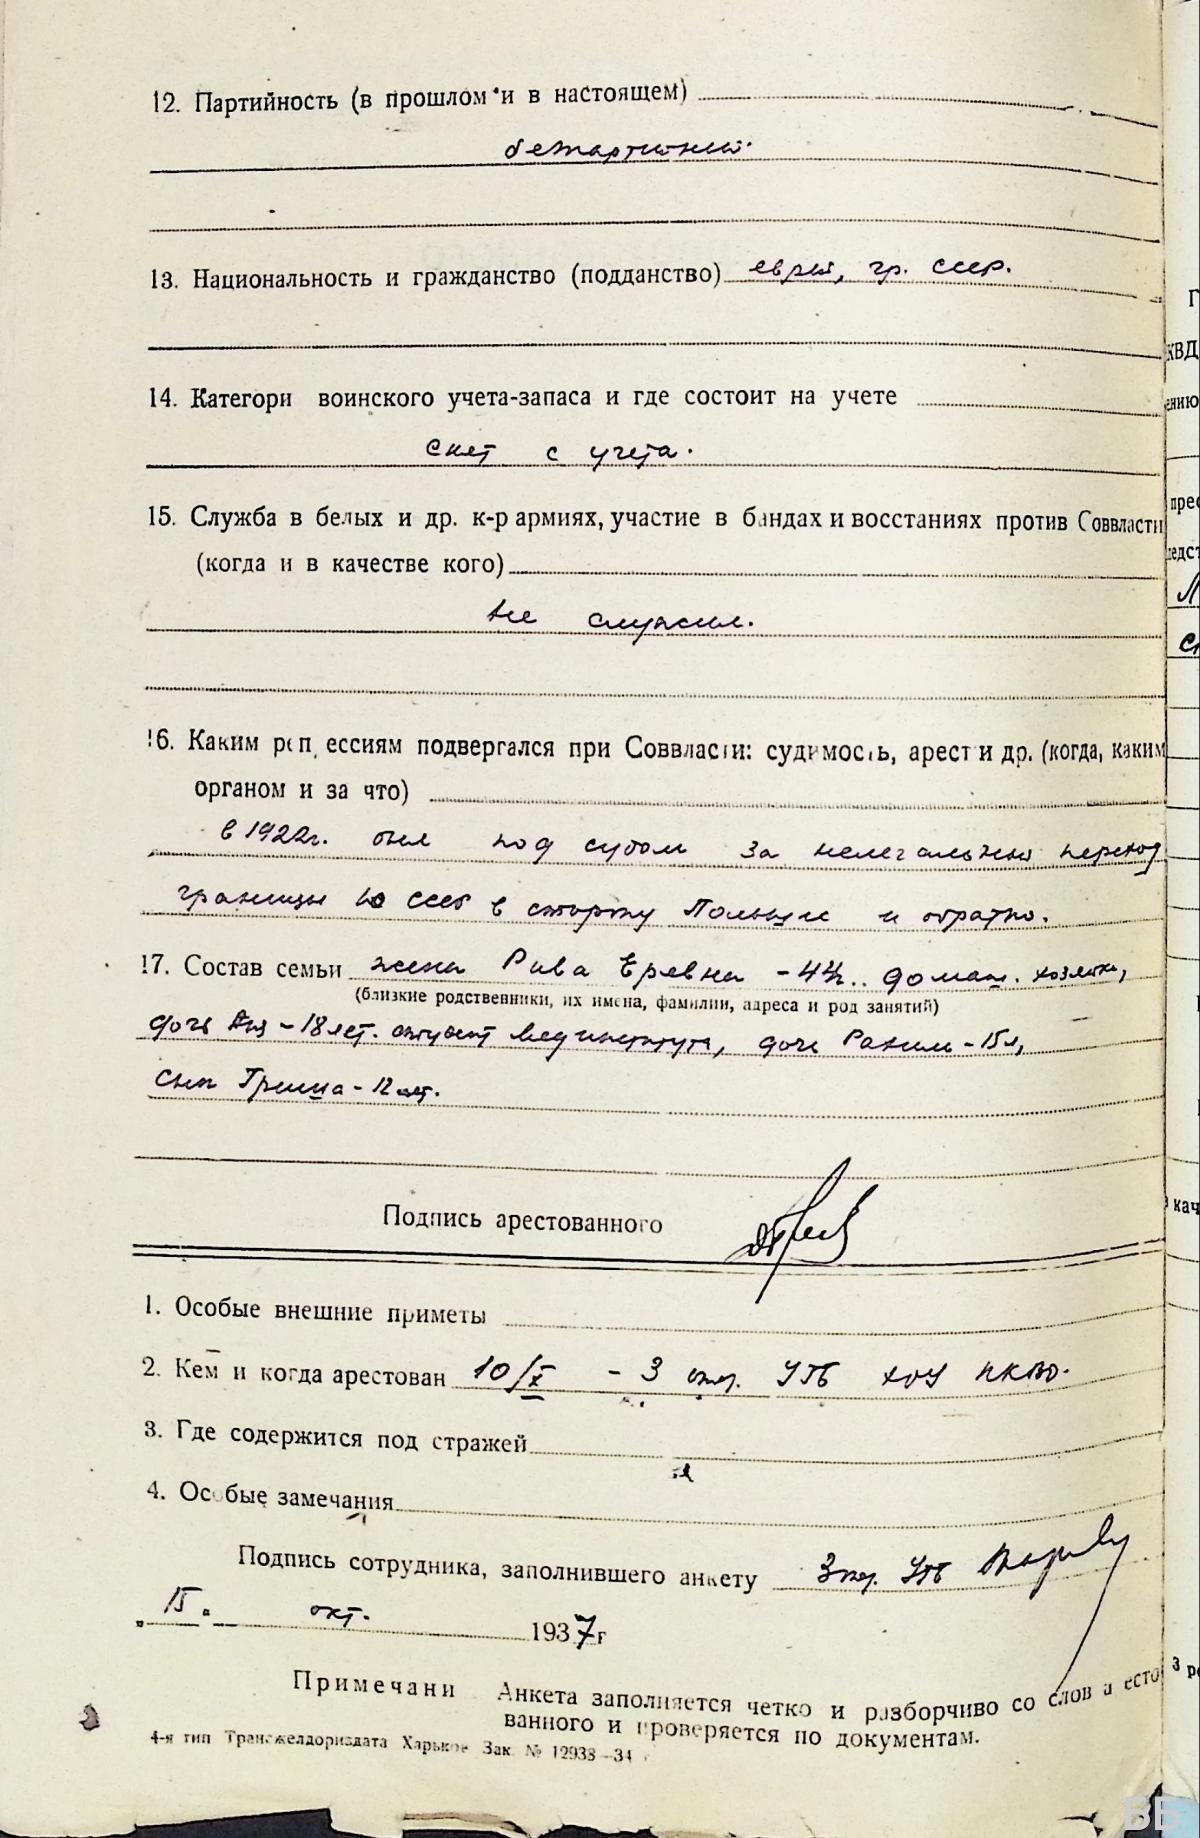 12. Партийность (в прошлом и в настоящем)
беспартийный.
13. Национальность и гражданство (подданство) еврей, гр. ссср.
14. Категори воинского учета-запаса и где состоит на учете
снят с учета.
15. Служба в белых и др. к-р армиях, участие в бандах и восстаниях против Соввласти
(когда и в качестве кого)
Не служил.
16. Каким репрессиям подвергался при Соввласти: судимость, арест и др. (когда, каким
органом и за что)
в 1922г. был под судом за нелегальный переход
границы из ссср в сторону Польши и обратно.
17. Состав семьи жена Рива – 44г. домаш. хозяйка,
(близкие родственники, их имена, фамилии, адреса и род занятий)
дочь – 18 лет. студент мединститута, дочь Рахиль – 15 л,
сын Гриша – 12 лет.
Подпись арестованного
1. Особые внешние приметы
2. Кем и когда арестован 10/X – 3 отд. УГБ ХОУ НКВД.
3. Где содержится под стражей
4. Особые замечания
Подпись сотрудника, заполнившего анкету 3 отд. УГБ
„15" окт. 1937г
Примечани Анкета заполняется четко и разборчиво со слов аресто
ванного и проверяется по документам.
4-я тип Трансжелдориздата Харьков Зак. № 12938—34 г
КВД
ению
прес
кач
ББ